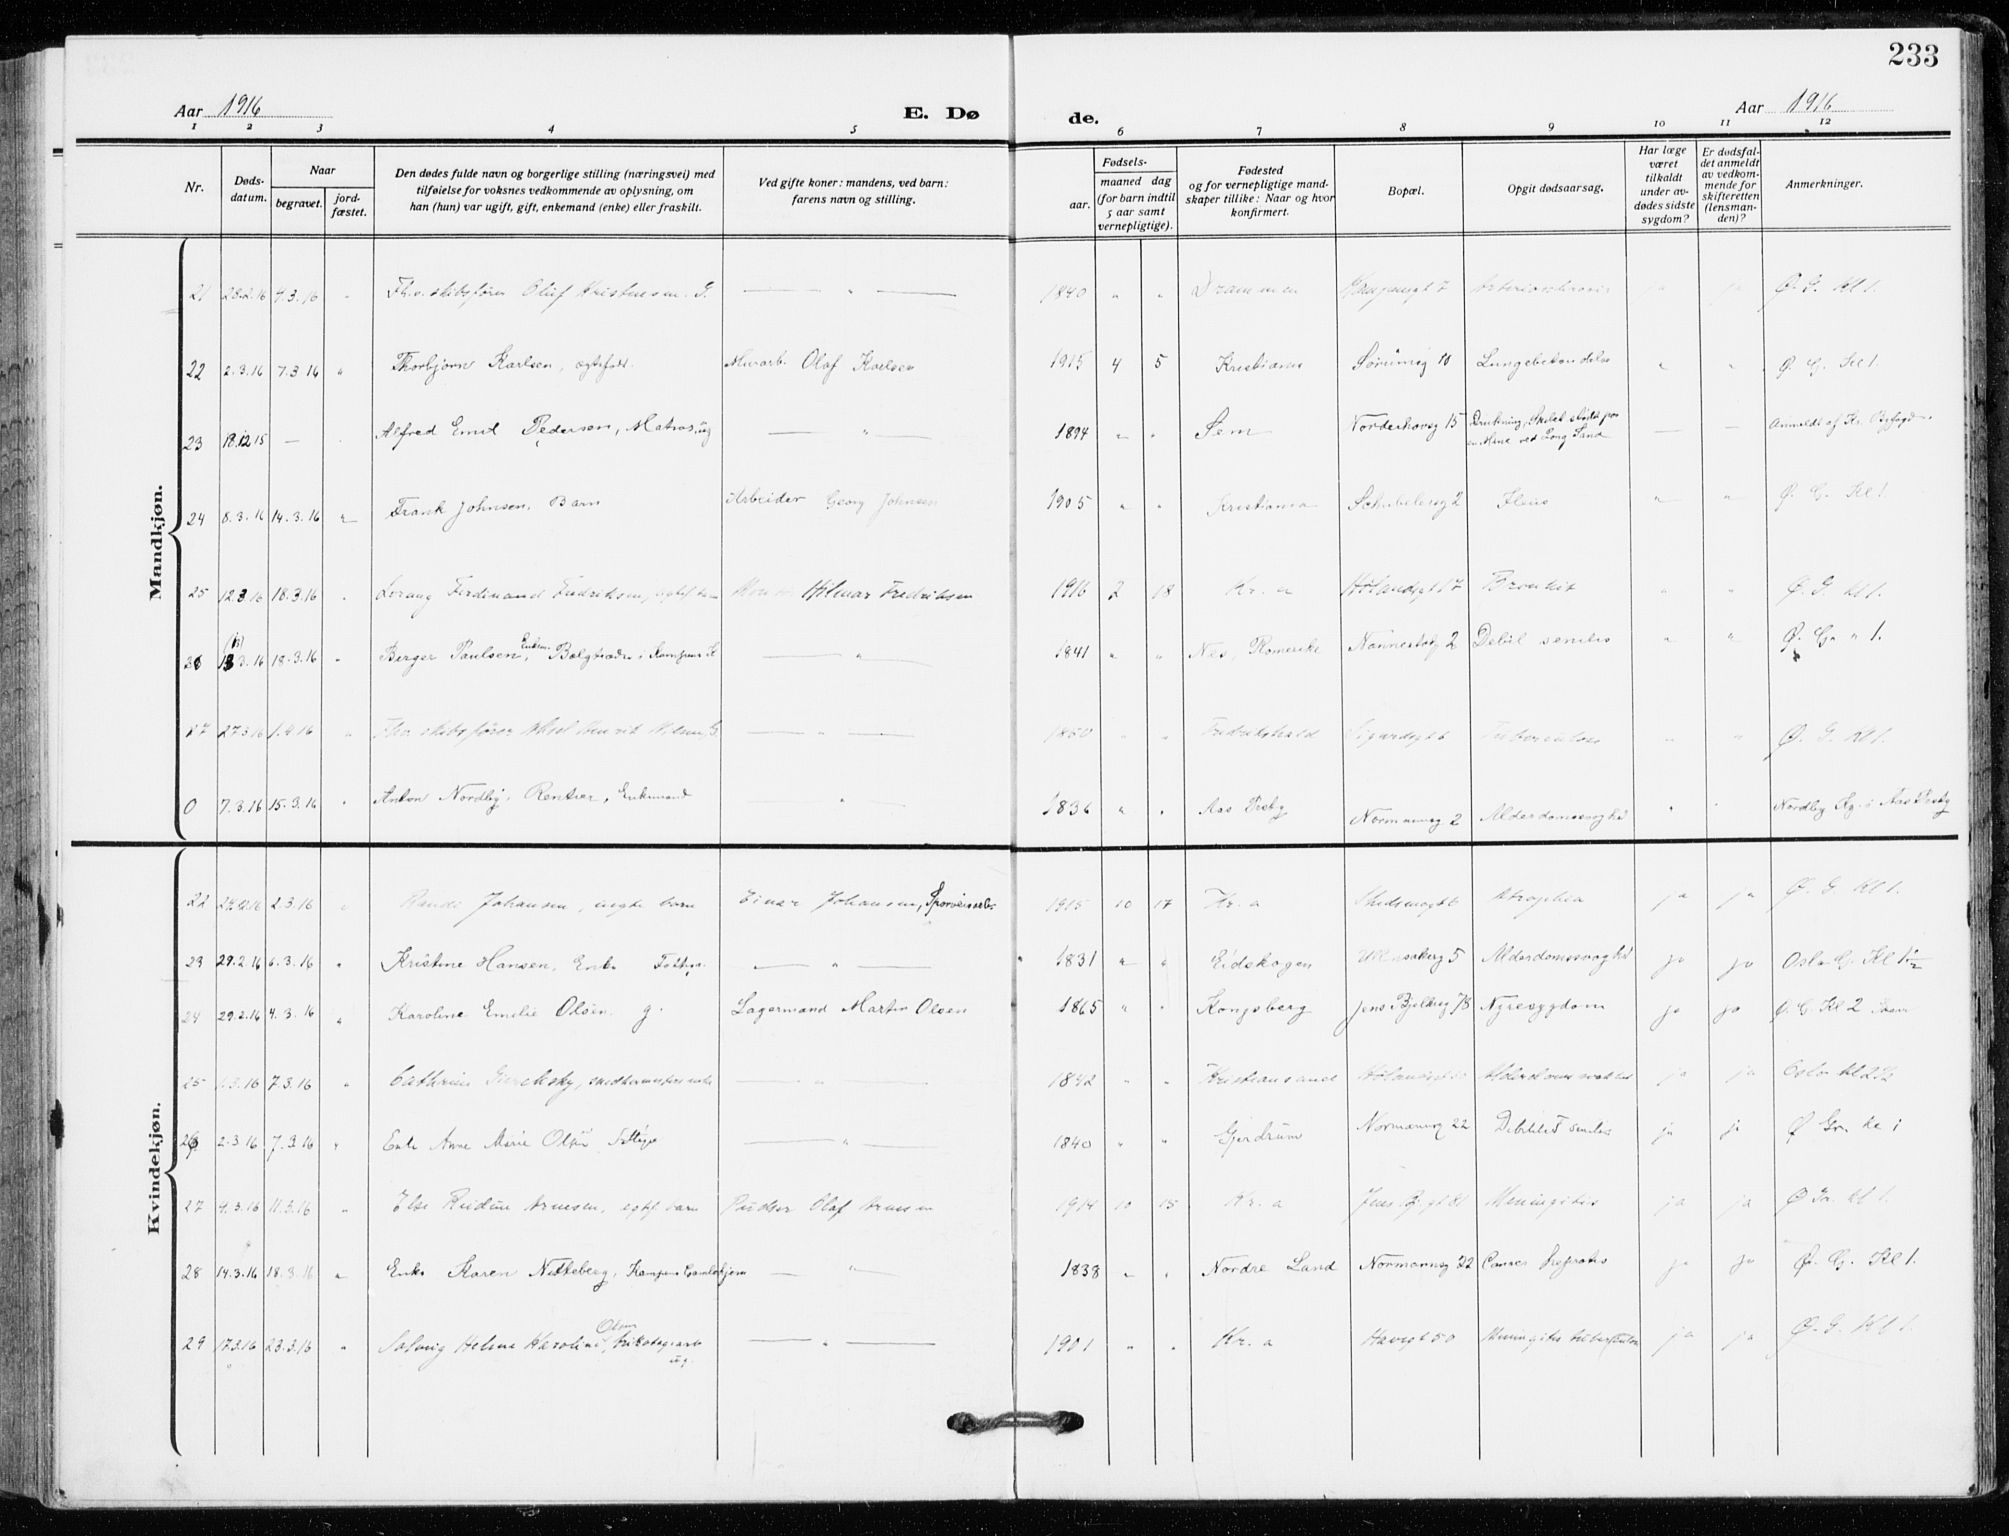 233
Aar 1916 E. Dø de. Aar 1916
1 2 3 4 5 6 7 8 9 10 11 12
Nr. Døds-datum. Naar begravet. jord-fæstet. Den dødes fulde navn og borgerlige stilling (næringsvei) med tilføielse for voksnes vedkommende av oplysning, om han (hun) var ugift, gift, enkemand (enke) eller fraskilt. Ved gifte koner: mandens, ved barn: farens navn og stilling. Fødsels- aar. maaned dag (for barn indtil 5 aar samt vernepligtige). Fødested og for vernepligtige mand-skaper tillike: Naar og hvor konfirmert. Bopæl. Opgit dødsaarsag. Har læge været tilkaldt under av-dødes sidste sygdom? Er dødsfal-det anmeldt av vedkom-mende for skifteretten (lensman-den)? Anmerkninger.
Mandkjøn.
21 28.2.16 4.3.16 " Fhv. skibsfører Oluf Kristensen. G. — " — 1840 " " Drammen 7 ja ja Ø. G. Kl 1.
22 2.3.16 7.3.16 " Thorbjørn Karlsen, ægtefødt. Murarb. Olaf Karlsen 1915 4 5 Kristiania 10 Lungebetændelse " " Ø. G. Kl 1.
23 18.12.15 — Alfred Emil Pedersen, Matros, ug — " — 1894 " " Sem Norderhovsg 15 Drukning, Skibet stødte paa en Mine ved Long Sand — — Anmeldt af Kr. Byfogd
24 8.3.16 14.3.16 " Frank Johnsen, Barn Arbeider Georg Johnsen 1905 " " Kristiania Schubelersg 2 Ileus " " Ø. G. Kl 1.
25 12.3.16 18.3.16 " Lorang Ferdinand Fredriksen, Hilmar Fredriksen 1916 2 18 Kr. a Hølandsgt 17 Bronkit " " Ø. G. Kl 1.
26 13.3.16 18.3.16 " Berger Paulsen, Enkem. Bælgtræder i Kampens K — " — 1841 " " Nes, Romerike Nannestadg 2 Debil senilis " " Ø. G. " 1.
27 27.3.16 1.4.16 " Fhv. skibsfører Aksel Henrik G. — " — 1850 " " Fredrikshald Sigurdsgt 6 Tuberculose " " Ø. G. Kl 1.
0 7.3.16 15.3.16 " Anton Nordby, Rentier, Enkemand — " — 1836 " " Aas Presbg Normannsg 2 Alderdomssvaghed " " Nordby Kg. i Aas Presbg
Kvindekjøn.
22 2.3.16 " Randi Johansen, uegte barn Einar Johansen, Sporveisarb. 1915 10 17 Kr. a Skedsmogt 6 Atrophia ja ja Ø. G. Kl 1.
23 29.2.16 6.3.16 " Kristine Hansen, Enke Fattig. — " — 1831 " " Eidskogen 5 Alderdomssvaghed ja ja Oslo G. Kl 1½
24 29.2.16 4.3.16 " Karoline Emilie Olsen. g. Lagermand Martin Olsen 1865 " " Kongsberg Jens Bjelkesg 78 Nyresygdom ja ja Ø. G. Kl 2
25 1.3.16 7.3.16 " Cathrine — " — 1842 " " Kristiansand Hølandsgt ja ja Oslo Kl 2½
26 2.3.16 7.3.16 " Enke Anne Marie Olsen Fattige — " — 1840 " " Gjerdrum Normannsg 22 Debilitas senilis ja ja Ø Gr. Kl 1
27 4.3.16 11.3.16 " Else Reidun Arnesen, egtef. barn Pudser Olaf Arnesen 1914 10 15 Kr. a Jens Bj. gt 81 Meningitis ja ja Ø Gr. Kl 1.
28 14.3.16 18.3.16 " Enke Karen Nitteberg, Kampens Gamlehjem — " — 1838 " " Nordre Land Normannsg 22 Cancer ja ja Ø. G. Kl 1.
29 17.3.16 23.3.16 " Solveig Helene Karoline Olsen, trikotagearb. ug. — " — 1901 " " Kr. a 50 Meningitis tuberculosa ja ja Ø. G. Kl 1.